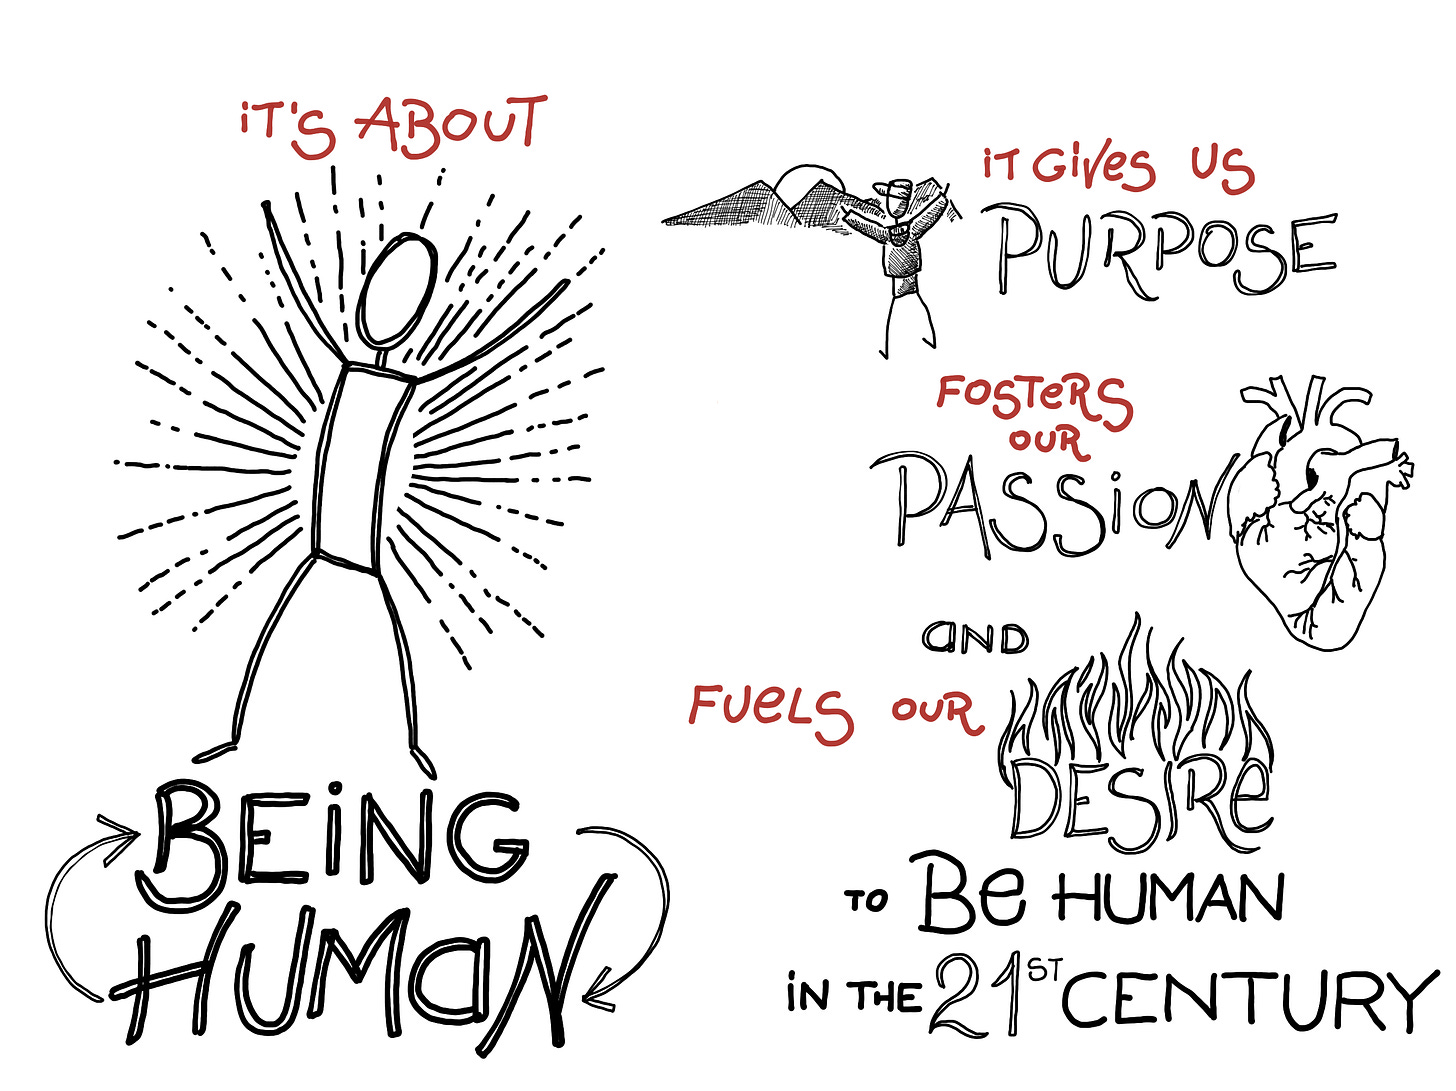 iT'S ABOUT
BEiNG
HUMaN
iT GiVeS US
PURPOSE
FOSTeRS
OUR
PASSiON
aND
FUeLS OUR
DESIRe
TO Be HUMAN
iN THE 21ST CENTURY